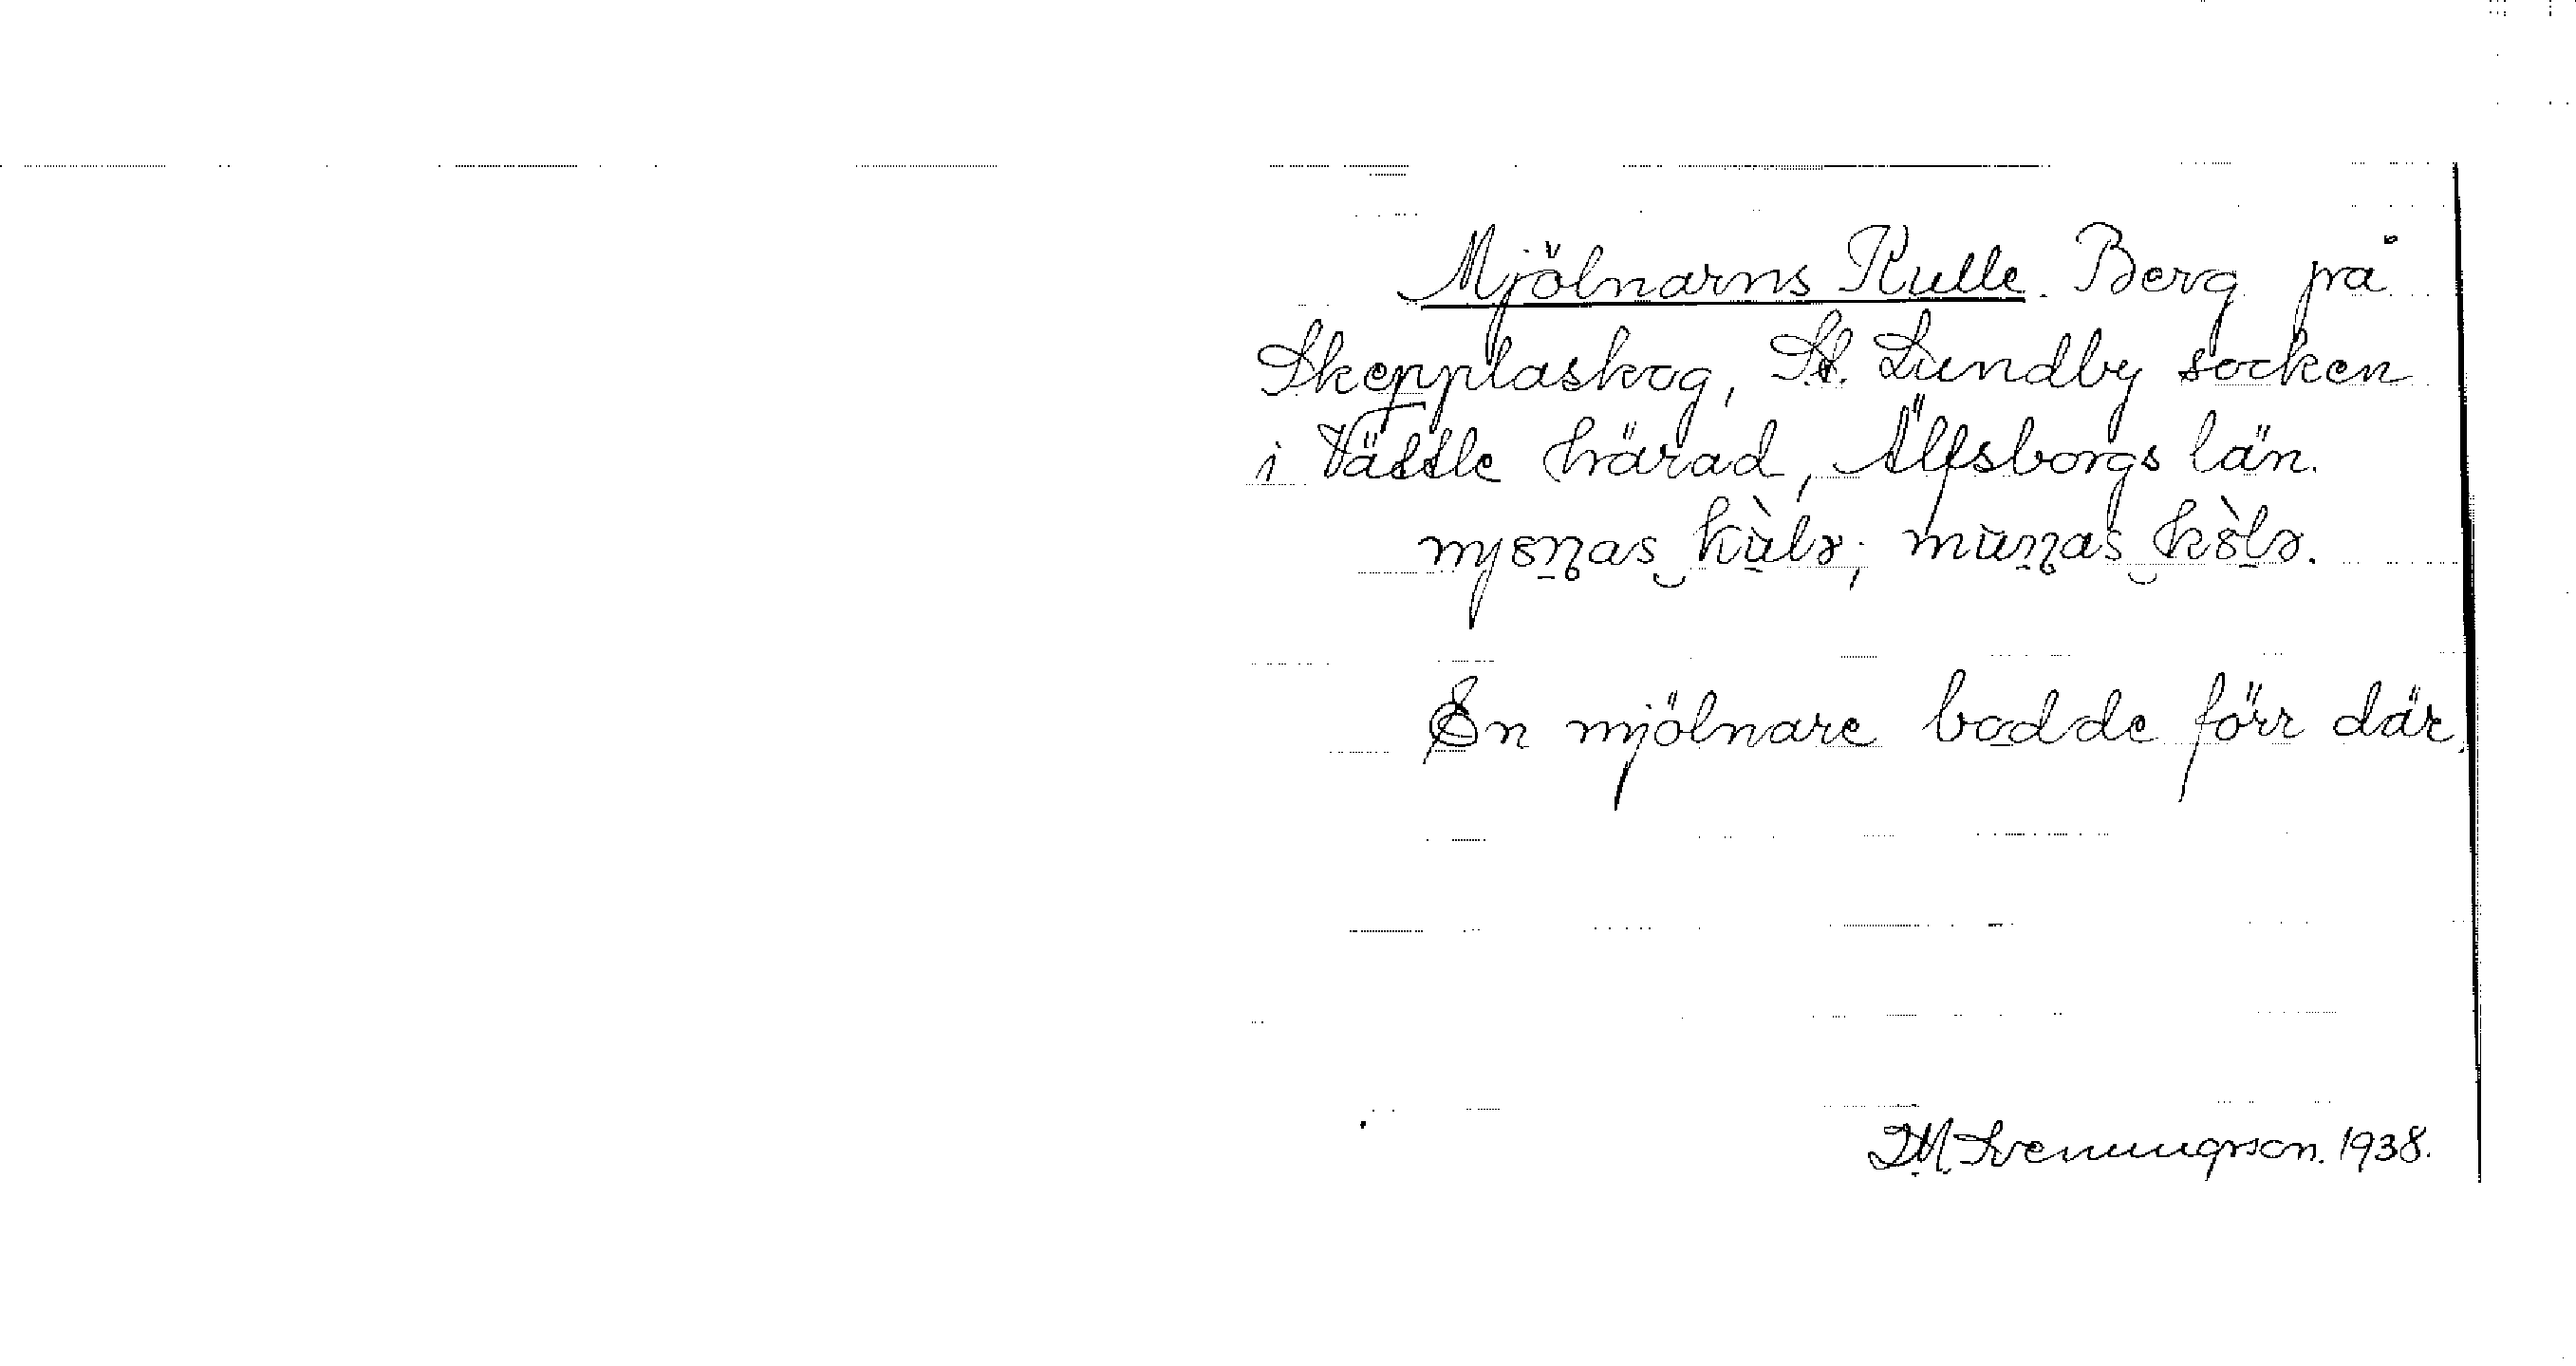 Mjölnarns Kulle. Berg på
Skepplaskog, St. Lundby socken
i Vättle härad, Älfsborgs län.
En mjölnare bodde förr där.
D.M. Svenungsson. 1938.